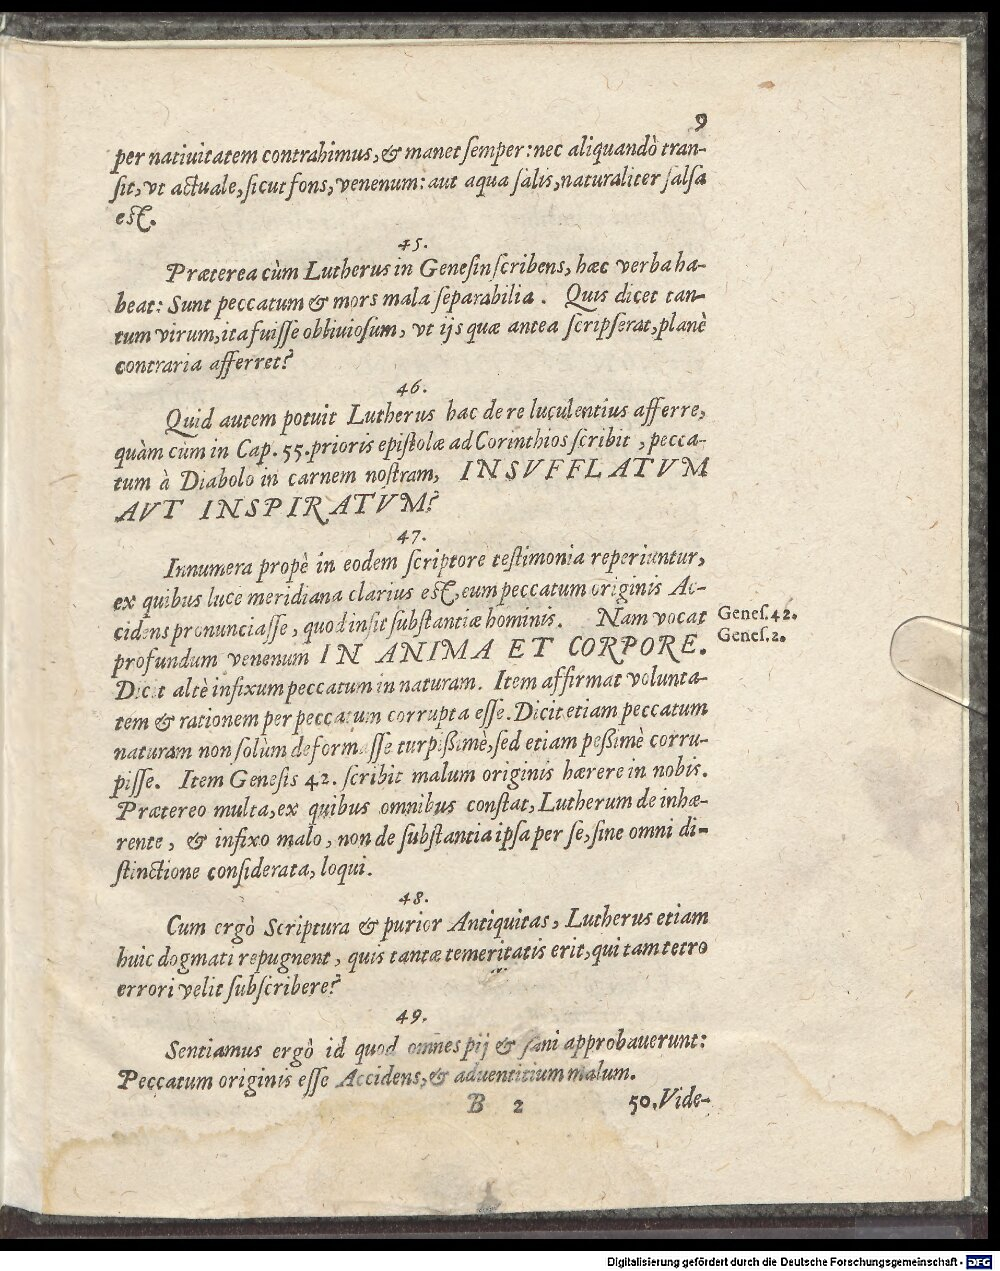 9
per natiuitatem contrahimus, & manet semper: nec aliquandò tran-
sit, vt actuale, sicut fons, venenum: aut aqua salis, naturaliter salsa
est.
45.
Præterea cùm Lutherus in Genesin scribens, hæc verba ha-
beat: Sunt peccatum & mors mala separabilia. Quis dicet tan-
tum virum, ita fuisse obliuiosum, vt ijs quæ antea scripserat, planè
contraria afferret?
46.
Quid autem potuit Lutherus hac de re luculentius afferre,
quàm cùm in Cap. 55. prioris epistolæ ad Corinthios scribit, pecca-
tum à Diabolo in carnem nostram, INSVFFLATVM
AVT INSPIRATVM?
47.
Innumera propè in eodem scriptore testimonia reperiuntur,
ex quibus luce meridiana clarius est, eum peccatum originis Ac-
cidens pronunciasse, quod insit substantiæ hominis. Nam vocat
Genes. 42.
profundum venenum IN ANIMA ET CORPORE.
Genes. 2.
Dicit altè infixum peccatum in naturam. Item affirmat volunta-
tem & rationem per peccatum corrupta esse. Dicit etiam peccatum
naturam non solùm deformasse turpißimè, sed etiam peßimè corru-
pisse. Item Genesis 42. scribit malum originis hærere in nobis.
Prætereo multa, ex quibus omnibus constat, Lutherum de inhæ-
rente, & infixo malo, non de substantia ipsa per se, sine omni di-
stinctione considerata, loqui.
48.
Cum ergò Scriptura & purior Antiquitas, Lutherus etiam
huic dogmati repugnent, quis tantæ temeritatis erit, qui tam tetro
errori velit subscribere?
49.
Sentiamus ergò id quod omnes pij & sani approbauerunt:
Peccatum originis esse Accidens, & aduentitium malum.
B 2
50. Vide-
Digitalisierung gefördert durch die Deutsche Forschungsgemeinschaft - DFG